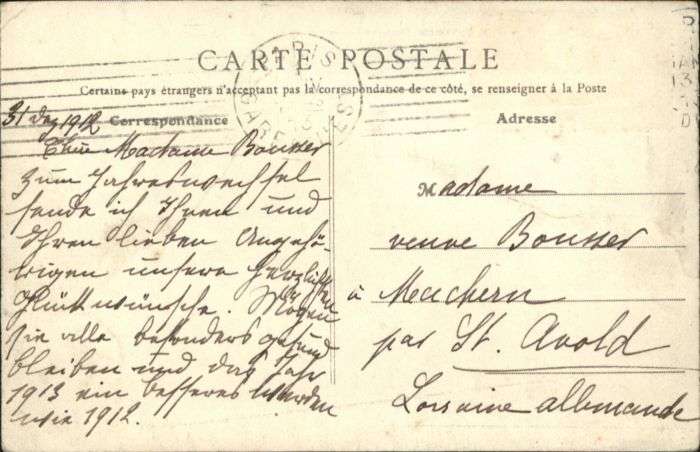 CARTE POSTALE
Certains pays étrangers n'acceptant pas la correspondance de ce côté, se renseigner à la Poste
31 Dez 1912 Correspondance
Madame Bousser
zum Jahreswechsel
sende ich Ihnen und
Ihren lieben Angehö-
rigen unsere herzlichsten
Glückwünsche. Mögen
sie alle besonders gesund
bleiben und das Jahr
1913 ein besseres werden
wie 1912.
Adresse
Madame
veuve Bousser
à Machern
par St. Avold
Lorraine allemande
PARIS
GARE